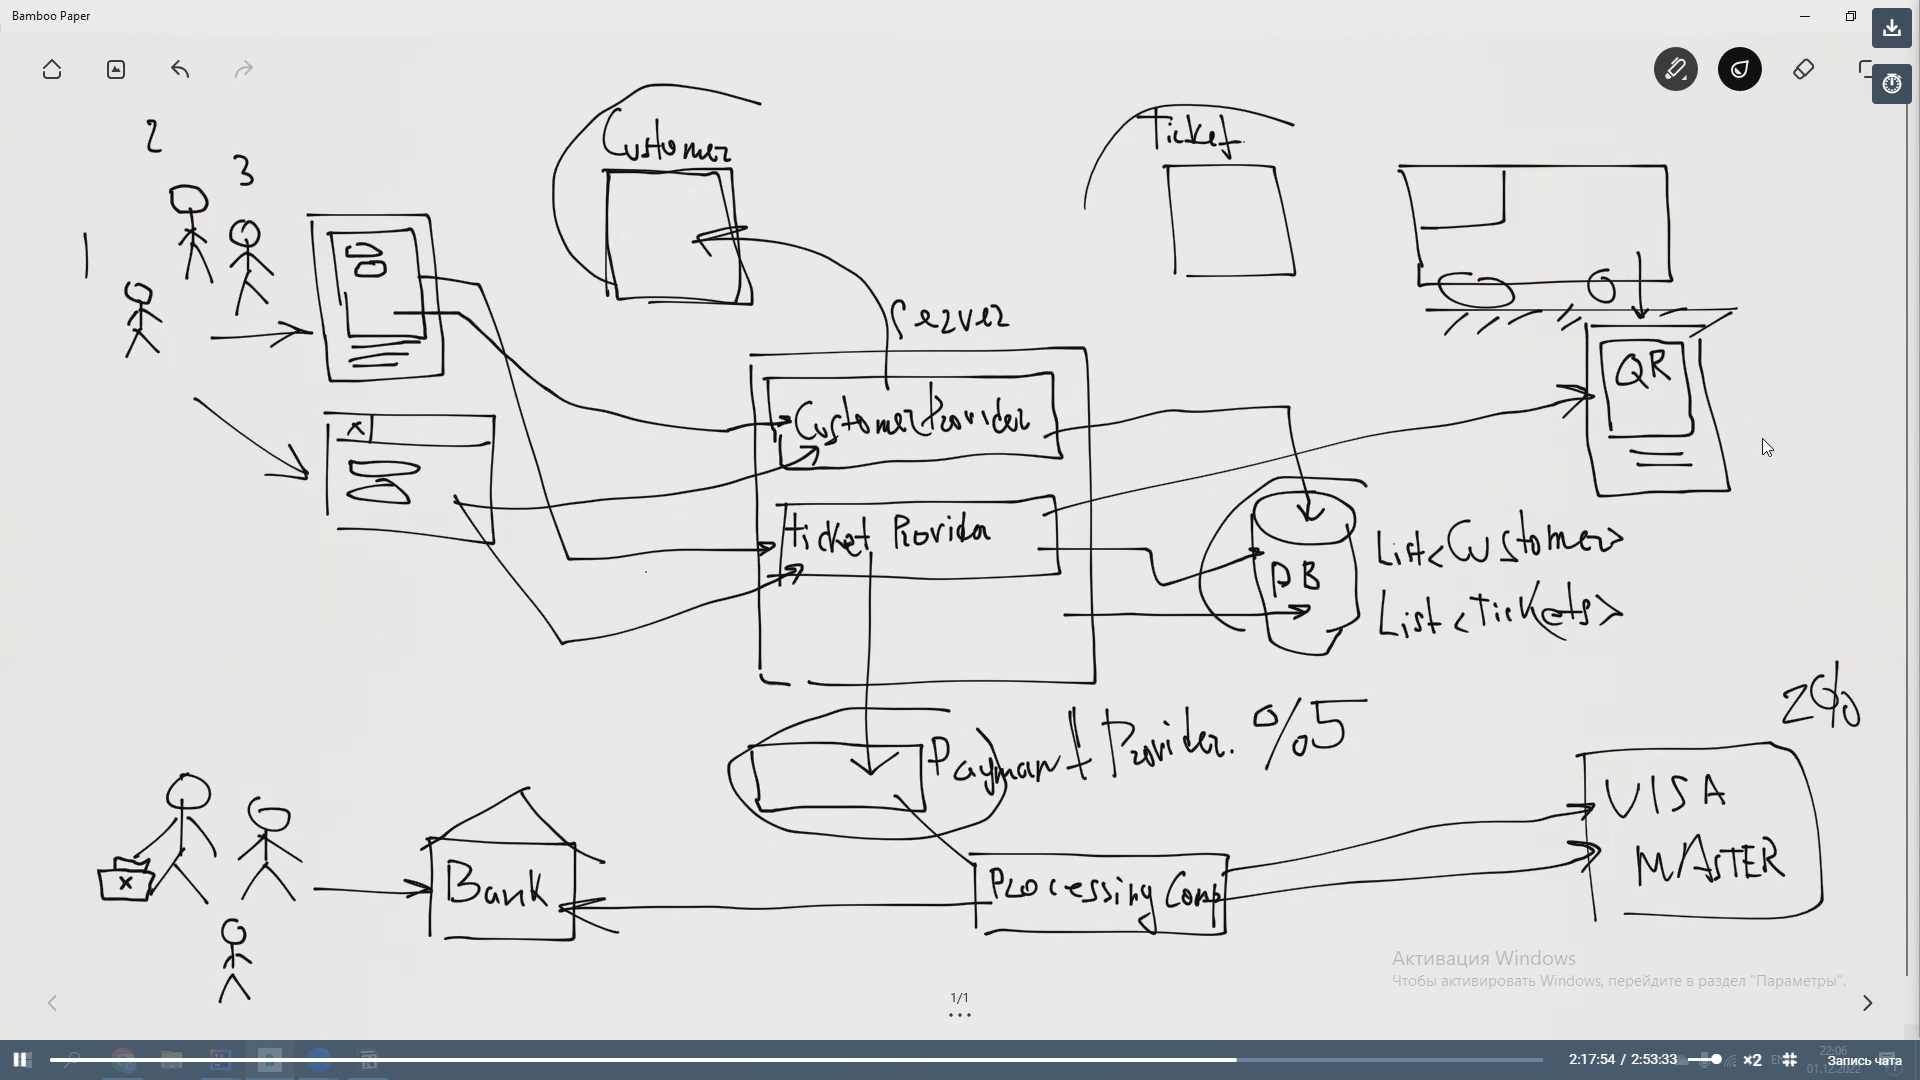 Bamboo Paper
2
3
1
Customer
Ticket
Server
QR
CustomerProvider
Ticket Provider
DB
List<Customer>
List<Tickets>
x
2%
Paymant Provider. %5
VISA
MASTER
Bank
Processing Comp
x
Активация Windows
Чтобы активировать Windows, перейдите в раздел "Параметры".
1/1
2:17:54 / 2:53:33
×2
22:06
01.12.2022
Запись чата